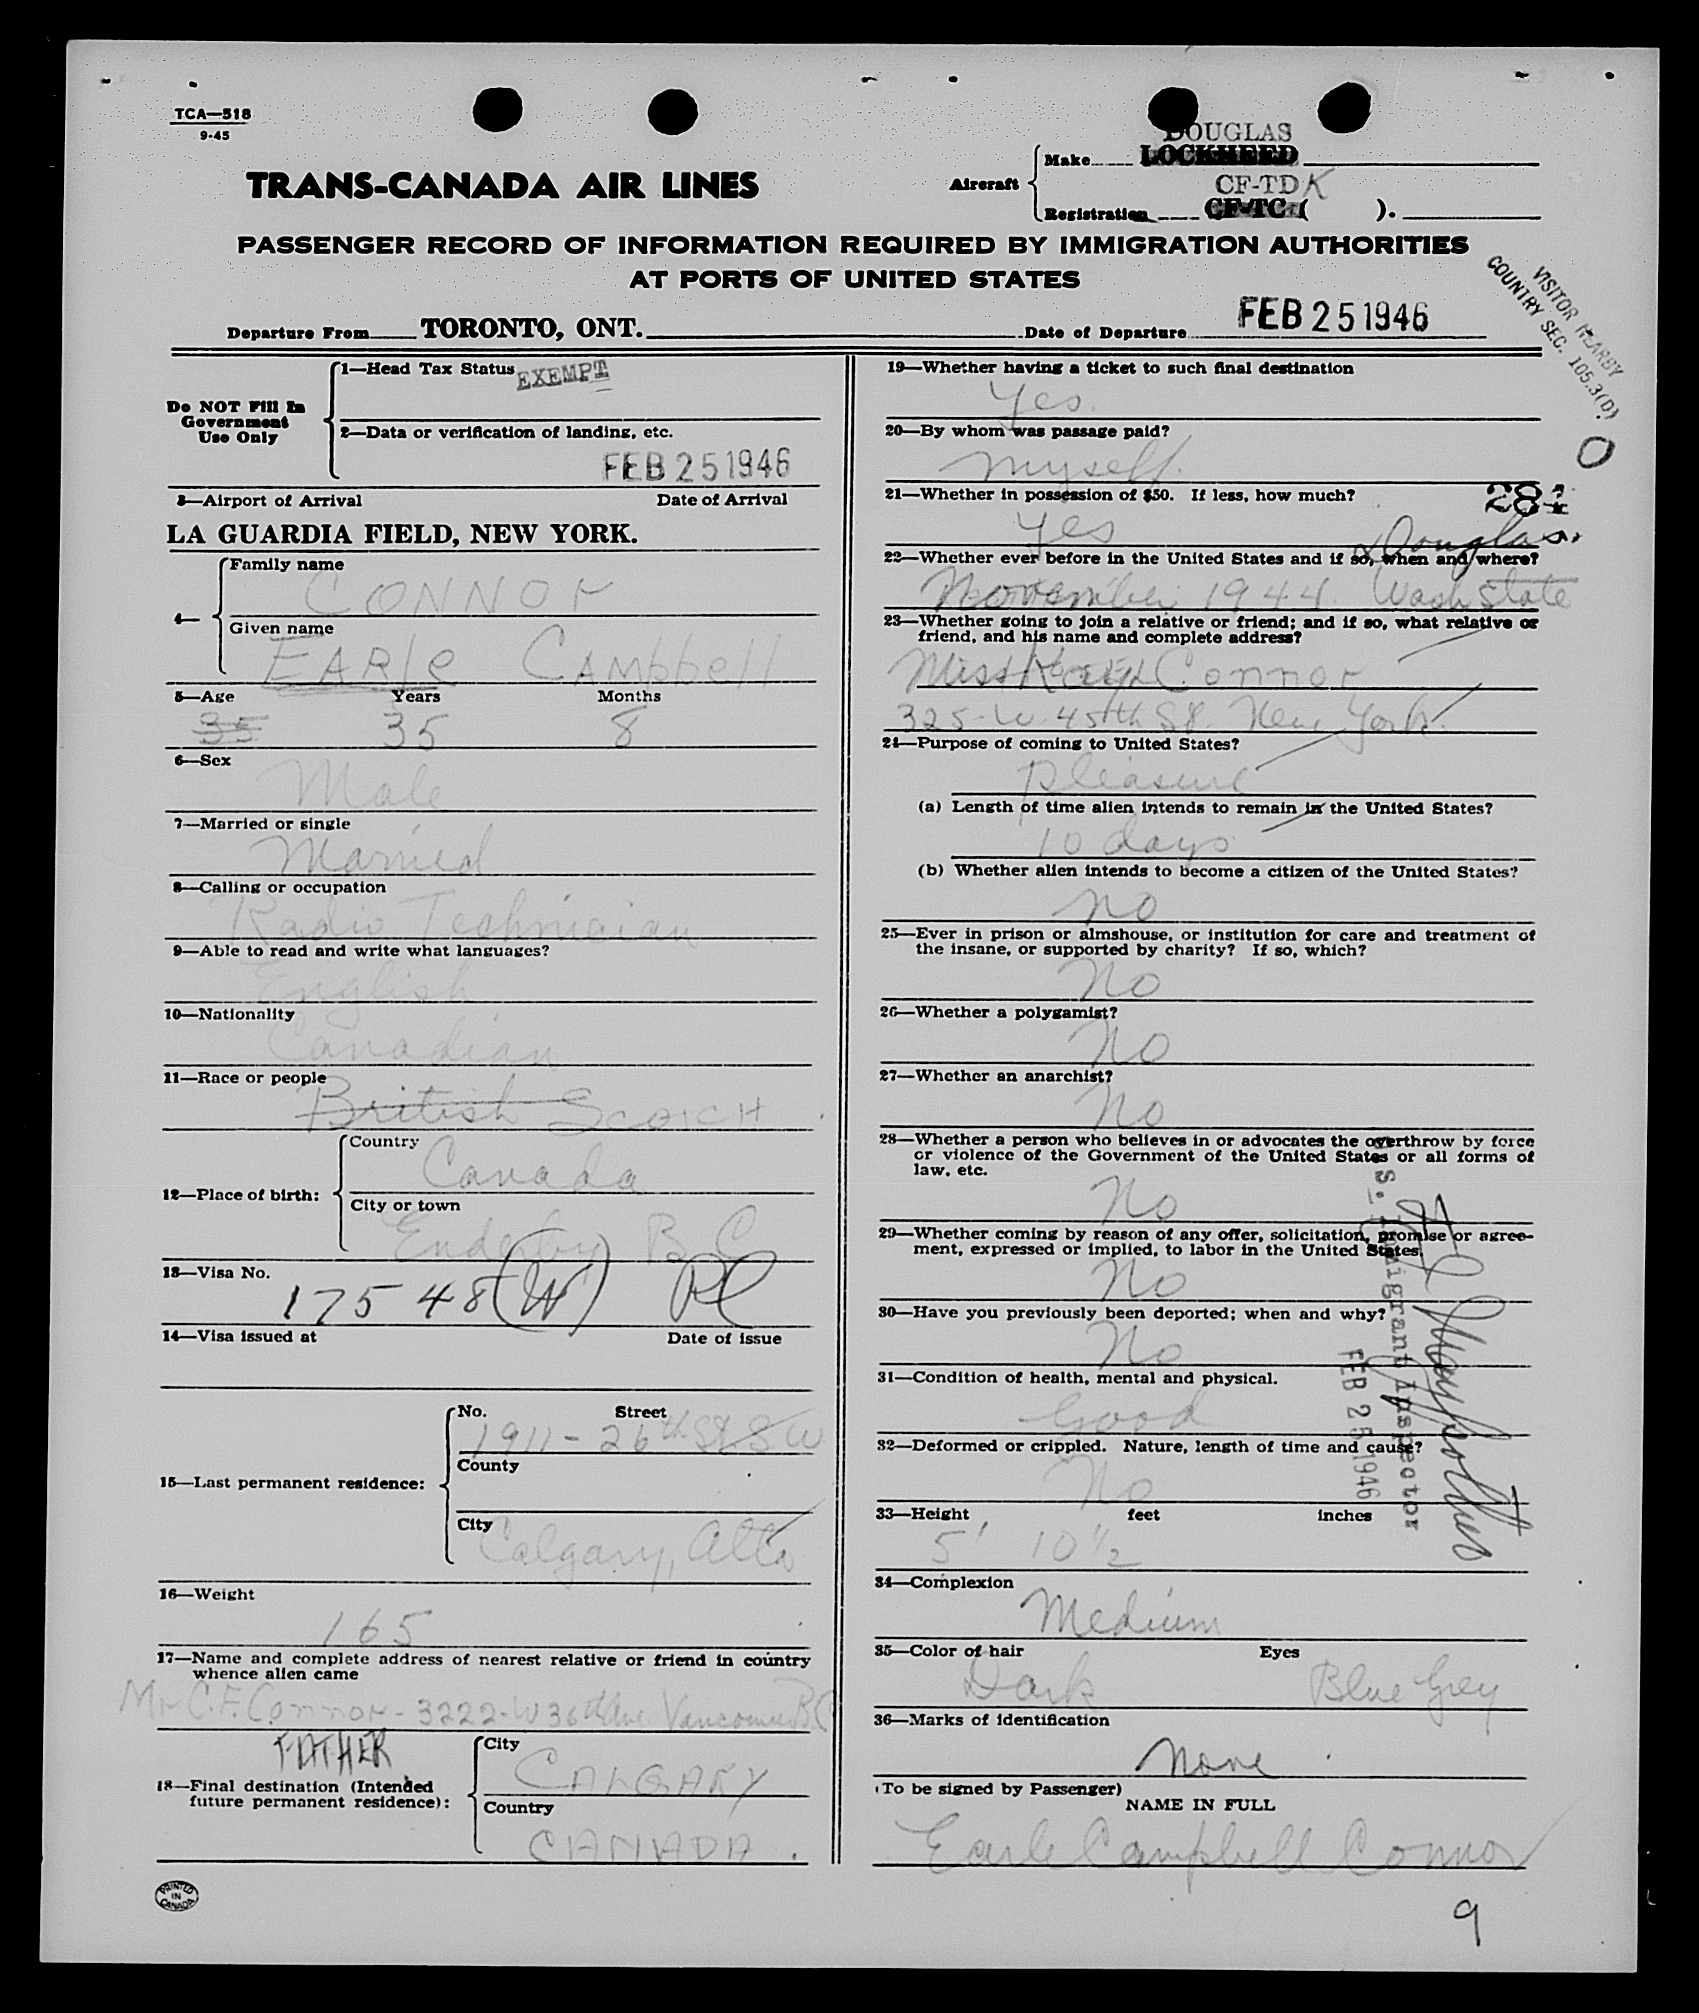 TCA—518
9-45
TRANS-CANADA AIR LINES
DOUGLAS
Aircraft Make LOCKHEED
CF-TDK
Registration CF-TC ( ).
PASSENGER RECORD OF INFORMATION REQUIRED BY IMMIGRATION AUTHORITIES
AT PORTS OF UNITED STATES
VISITOR NEARBY
COUNTRY SEC. 105.3(D)
Departure From TORONTO, ONT. Date of Departure FEB 25 1946
Do NOT Fill In
Government
Use Only
1—Head Tax Status EXEMPT
2—Data or verification of landing, etc.
FEB 25 1946
3—Airport of Arrival Date of Arrival
LA GUARDIA FIELD, NEW YORK.
4—
Family name
CONNOr
Given name
EARle CAMpbell
5—Age Years Months
35 35 8
6—Sex
Male
7—Married or single
Married
8—Calling or occupation
Radio Technician
9—Able to read and write what languages?
English
10—Nationality
Canadian
11—Race or people
British SCOTCH
12—Place of birth:
Country
Canada
City or town
Enderby B C
13—Visa No.
17548 (W)
14—Visa issued at Date of issue
15—Last permanent residence:
No. Street
1911 - 26th St SW
County
City
Calgary, Alta
16—Weight
165
17—Name and complete address of nearest relative or friend in country
whence alien came
Mr C.F. Connor - 3222-W 36th Ave Vancouver B.C
FATHER
18—Final destination (Intended
future permanent residence):
City
CALGARY
Country
CANADA.
PRINTED
IN
CANADA
19—Whether having a ticket to such final destination
Yes.
20—By whom was passage paid?
myself.
21—Whether in possession of $50. If less, how much?
Yes
Douglas.
22—Whether ever before in the United States and if so, when and where?
November 1944. Wash State
23—Whether going to join a relative or friend; and if so, what relative or
friend, and his name and complete address?
Miss Kay Connor
325-W. 45th St. New York.
24—Purpose of coming to United States?
Pleasure
(a) Length of time alien intends to remain in the United States?
10 days
(b) Whether alien intends to become a citizen of the United States?
no
25—Ever in prison or almshouse, or institution for care and treatment of
the insane, or supported by charity? If so, which?
No
26—Whether a polygamist?
No
27—Whether an anarchist?
No
28—Whether a person who believes in or advocates the overthrow by force
or violence of the Government of the United States or all forms of
law, etc.
No
29—Whether coming by reason of any offer, solicitation, promise or agree-
ment, expressed or implied, to labor in the United States.
No
30—Have you previously been deported; when and why?
No
31—Condition of health, mental and physical.
Good
32—Deformed or crippled. Nature, length of time and cause?
No
33—Height feet inches
5' 10½
34—Complexion
Medium
35—Color of hair Eyes
Dark Blue Grey
36—Marks of identification
None
(To be signed by Passenger)
NAME IN FULL
Earle Campbell Connor
S. Immigrant Inspector
FEB 25 1946
9